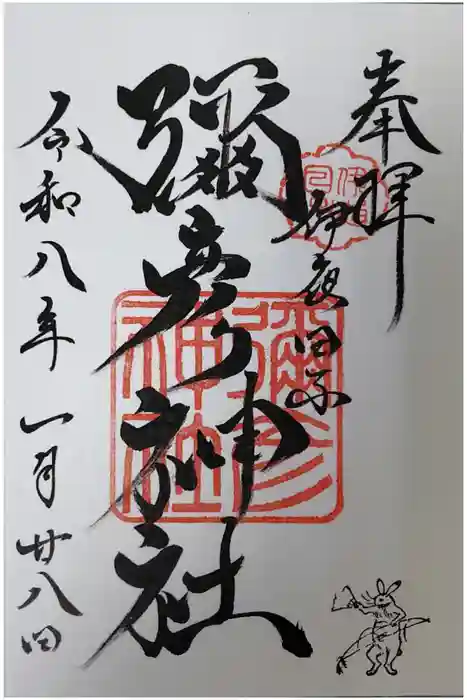 奉拝
伊夜日子
彌彦神社
彌彦
神社
令和八年一月廿八日